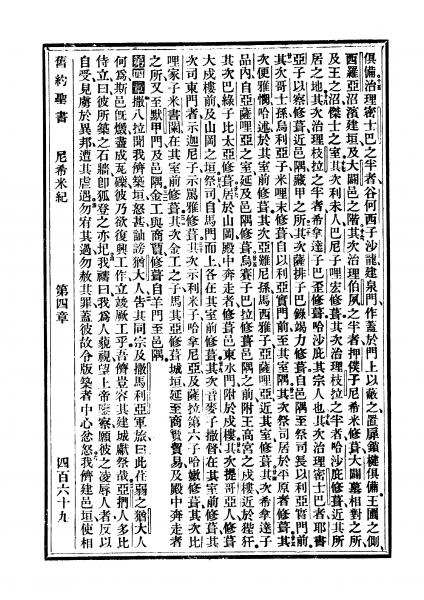 俱備治理密士巴之半者谷何西子沙龍建泉門作蓋於門上以蔽之置扉鎖楗俱備王囿之側
西羅亞沼濱建垣及大闢邑之階其次治理伯夙之半者押僕子尼希米修葺大闢墓相對之所
及王之沼傑士之室其次利未人巴尼子哩宏修葺其次治理枝拉之半者哈沙庇修葺近其所
居之地其次治理枝拉之半者希拿達子巴歪修葺哈沙庇其宗人也其次治理密士巴者耶書
亞子以察修葺近邑隅藏甲之所其次薩排子巴錄竭力修葺自邑隅至祭司長以利亞實門前
其次哥士孫烏利亞子米哩末修葺自以利亞實門前至其室隅其次祭司居於平原者修葺其
次便雅憫哈述於其室前修葺其次亞難尼孫馬西雅子亞薩哩亞近其室修葺其次希拿達子
品內自亞薩哩亞之室延及邑隅修葺烏賽子巴拉修葺邑隅之前附王高宮之戍樓近於狴犴
其次巴綠子比太亞修葺居於山岡殿中奔走者修葺邑東水門附於戍樓其次提哥亞人修葺
大戍樓前及山岡之垣祭司自馬門而上各在其室前修葺其次音麥子撒督在其室前修葺其
次司東門者示迦尼子示罵雅修葺其次示利米子哈拿尼亞及薩拉第六子哈嫩修葺其次比
哩家子米書闌在其室前修葺其次金工之子馬其亞修葺城垣延至商賈貿易及殿中奔走者
之所又至默甲門及邑隅金工與商賈修葺自羊門至邑隅
第四章撒八拉聞我儕築垣怒甚訕謗猶大人告其同宗及撒馬利亞軍旅曰此荏弱之猶大人
何為斯邑旣燬盡成瓦礫彼乃欲復興工作立竣厥工乎吾儕豈容其建城獻祭哉亞捫人多比
侍立曰彼所築之石牆卽狐登之亦圯我禱曰我為人藐視望上帝鑒察願彼之凌辱人者反以
自受見虜於異邦遭其暴虐遇勿宥其過勿赦其罪蓋彼故令版築者中心忿怒我儕建邑垣使相
舊約聖書　尼希米紀　第四章　四百六十九